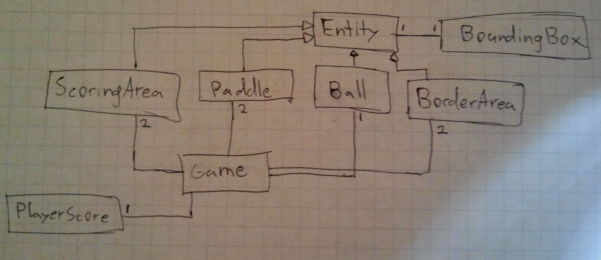 Entity 1 1 BoundingBox
ScoringArea Paddle Ball BorderArea
2 2 1 2
Game
PlayerScore 1